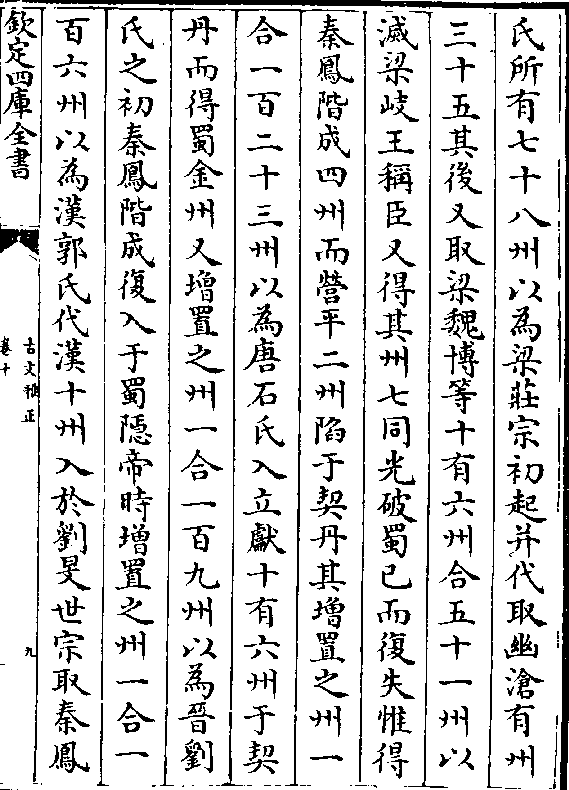 氏所有七十八州以為梁莊宗初起并代取幽滄有州
三十五其後又取梁魏博等十有六州合五十一州以
滅梁岐王稱臣又得其州七同光破蜀已而復失惟得
秦鳳階成四州而營平二州陷于契丹其增置之州一
合一百二十三州以為唐石氏入立獻十有六州于契
丹而得蜀金州又增置之州一合一百九州以為晉劉
氏之初秦鳳階成復入于蜀隱帝時增置之州一合一
百六州以為漢郭氏代漢十州入於劉旻世宗取秦鳳
欽定四庫全書
古文雅正
卷十
九